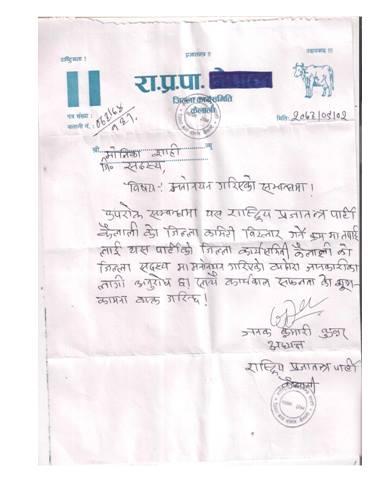 राष्ट्रियता ! प्रजातन्त्र !!
रा.प्र.पा.
जिल्ला कार्यसमिति
कैलाली
पत्र संख्या :
चलानी नं. : मिति: २०६२/०९/०२
श्री मोनिका शाही ज्यू
सदस्य,
विषय : मनोनयन गरिएको सम्बन्धमा !
उपरोक्त सम्बन्धमा यस राष्ट्रिय प्रजातन्त्र पार्टी
कैलाली को जिल्ला कमिटी विस्तार गर्ने क्रममा तपाई
लाई यस पार्टीको जिल्ला कार्यसमिती कैलाली को
जिल्ला सदस्य मा मनोनयन गरिएको व्यहोरा जानकारीका
लागी अनुरोध छ। कार्यकाल सफलता को शुभ-
कामना व्यक्त गरिन्छ !
जनक कुमारी
अध्यक्ष
राष्ट्रिय प्रजातन्त्र पार्टी
कैलाली